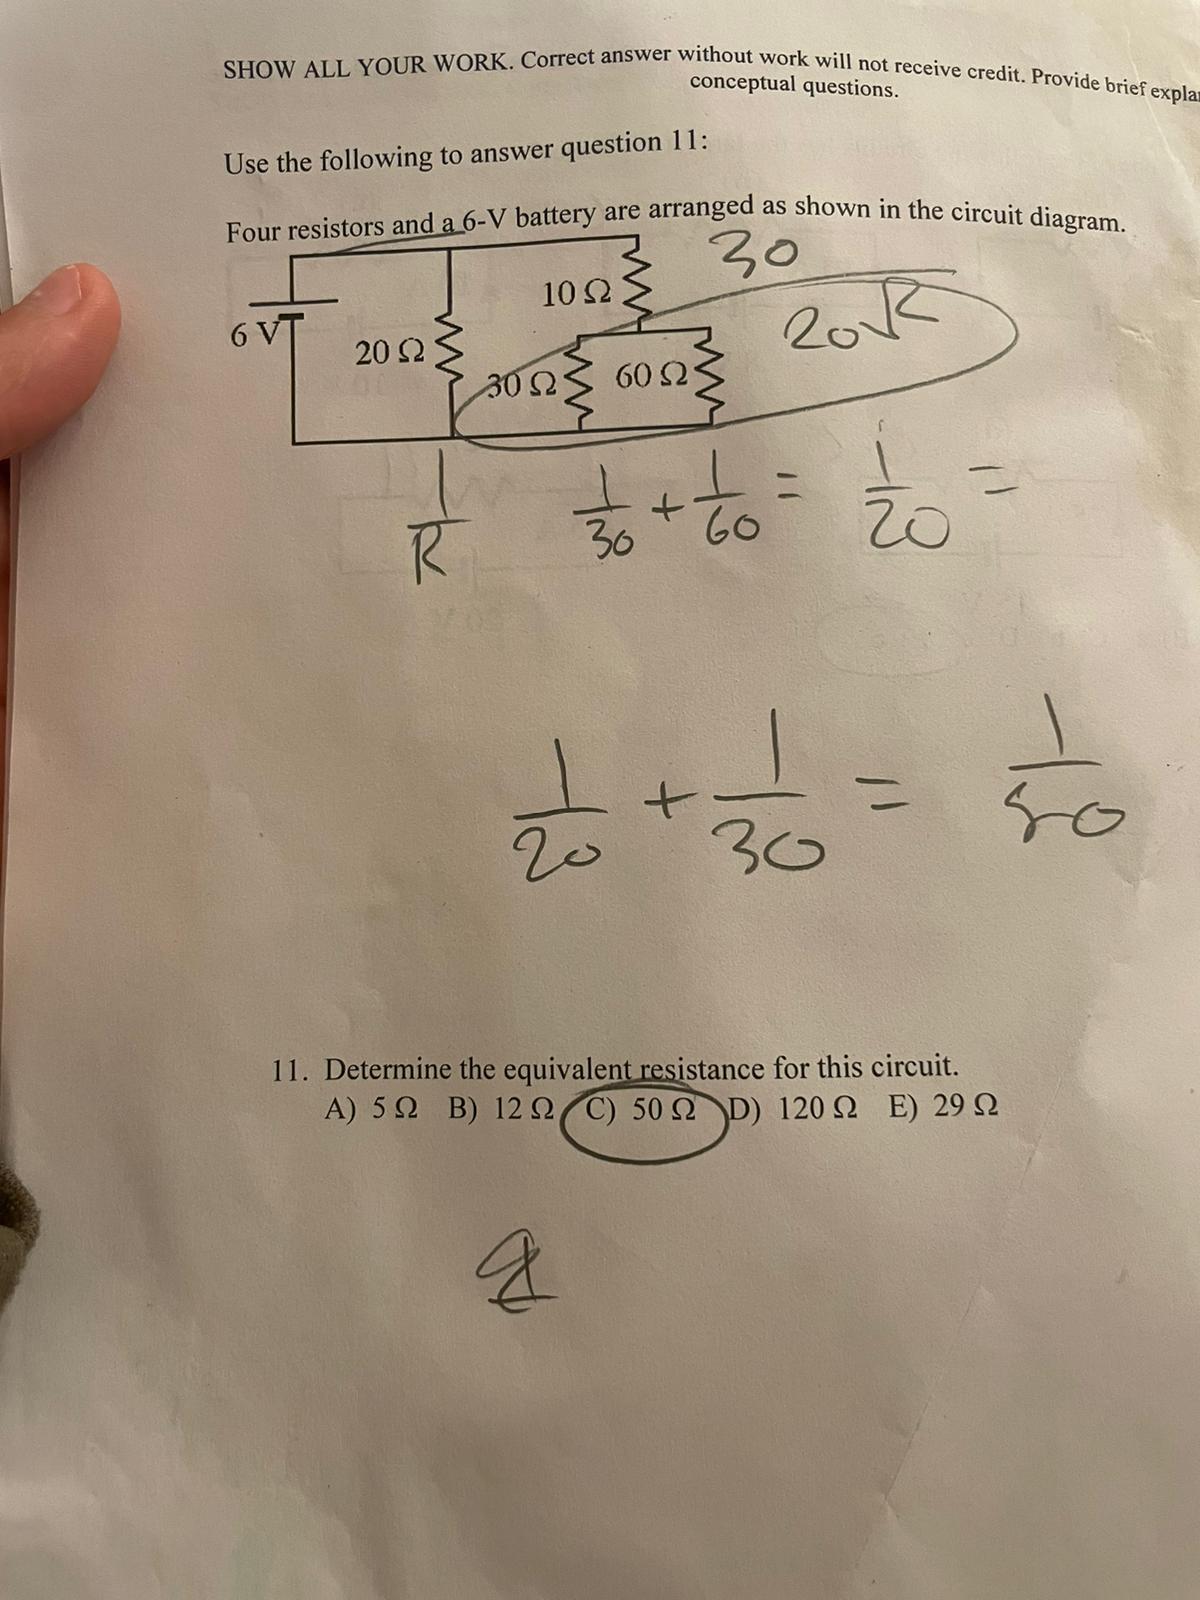 SHOW ALL YOUR WORK. Correct answer without work will not receive credit. Provide brief expla
conceptual questions.
Use the following to answer question 11:
Four resistors and a 6-V battery are arranged as shown in the circuit diagram.
30
10 Ω
20
6 V
20 Ω
30 Ω
60 Ω
1/R
1/30 + 1/60 = 1/20 =
1/20 + 1/30 = 1/50
11. Determine the equivalent resistance for this circuit.
A) 5 Ω B) 12 Ω C) 50 Ω D) 120 Ω E) 29 Ω